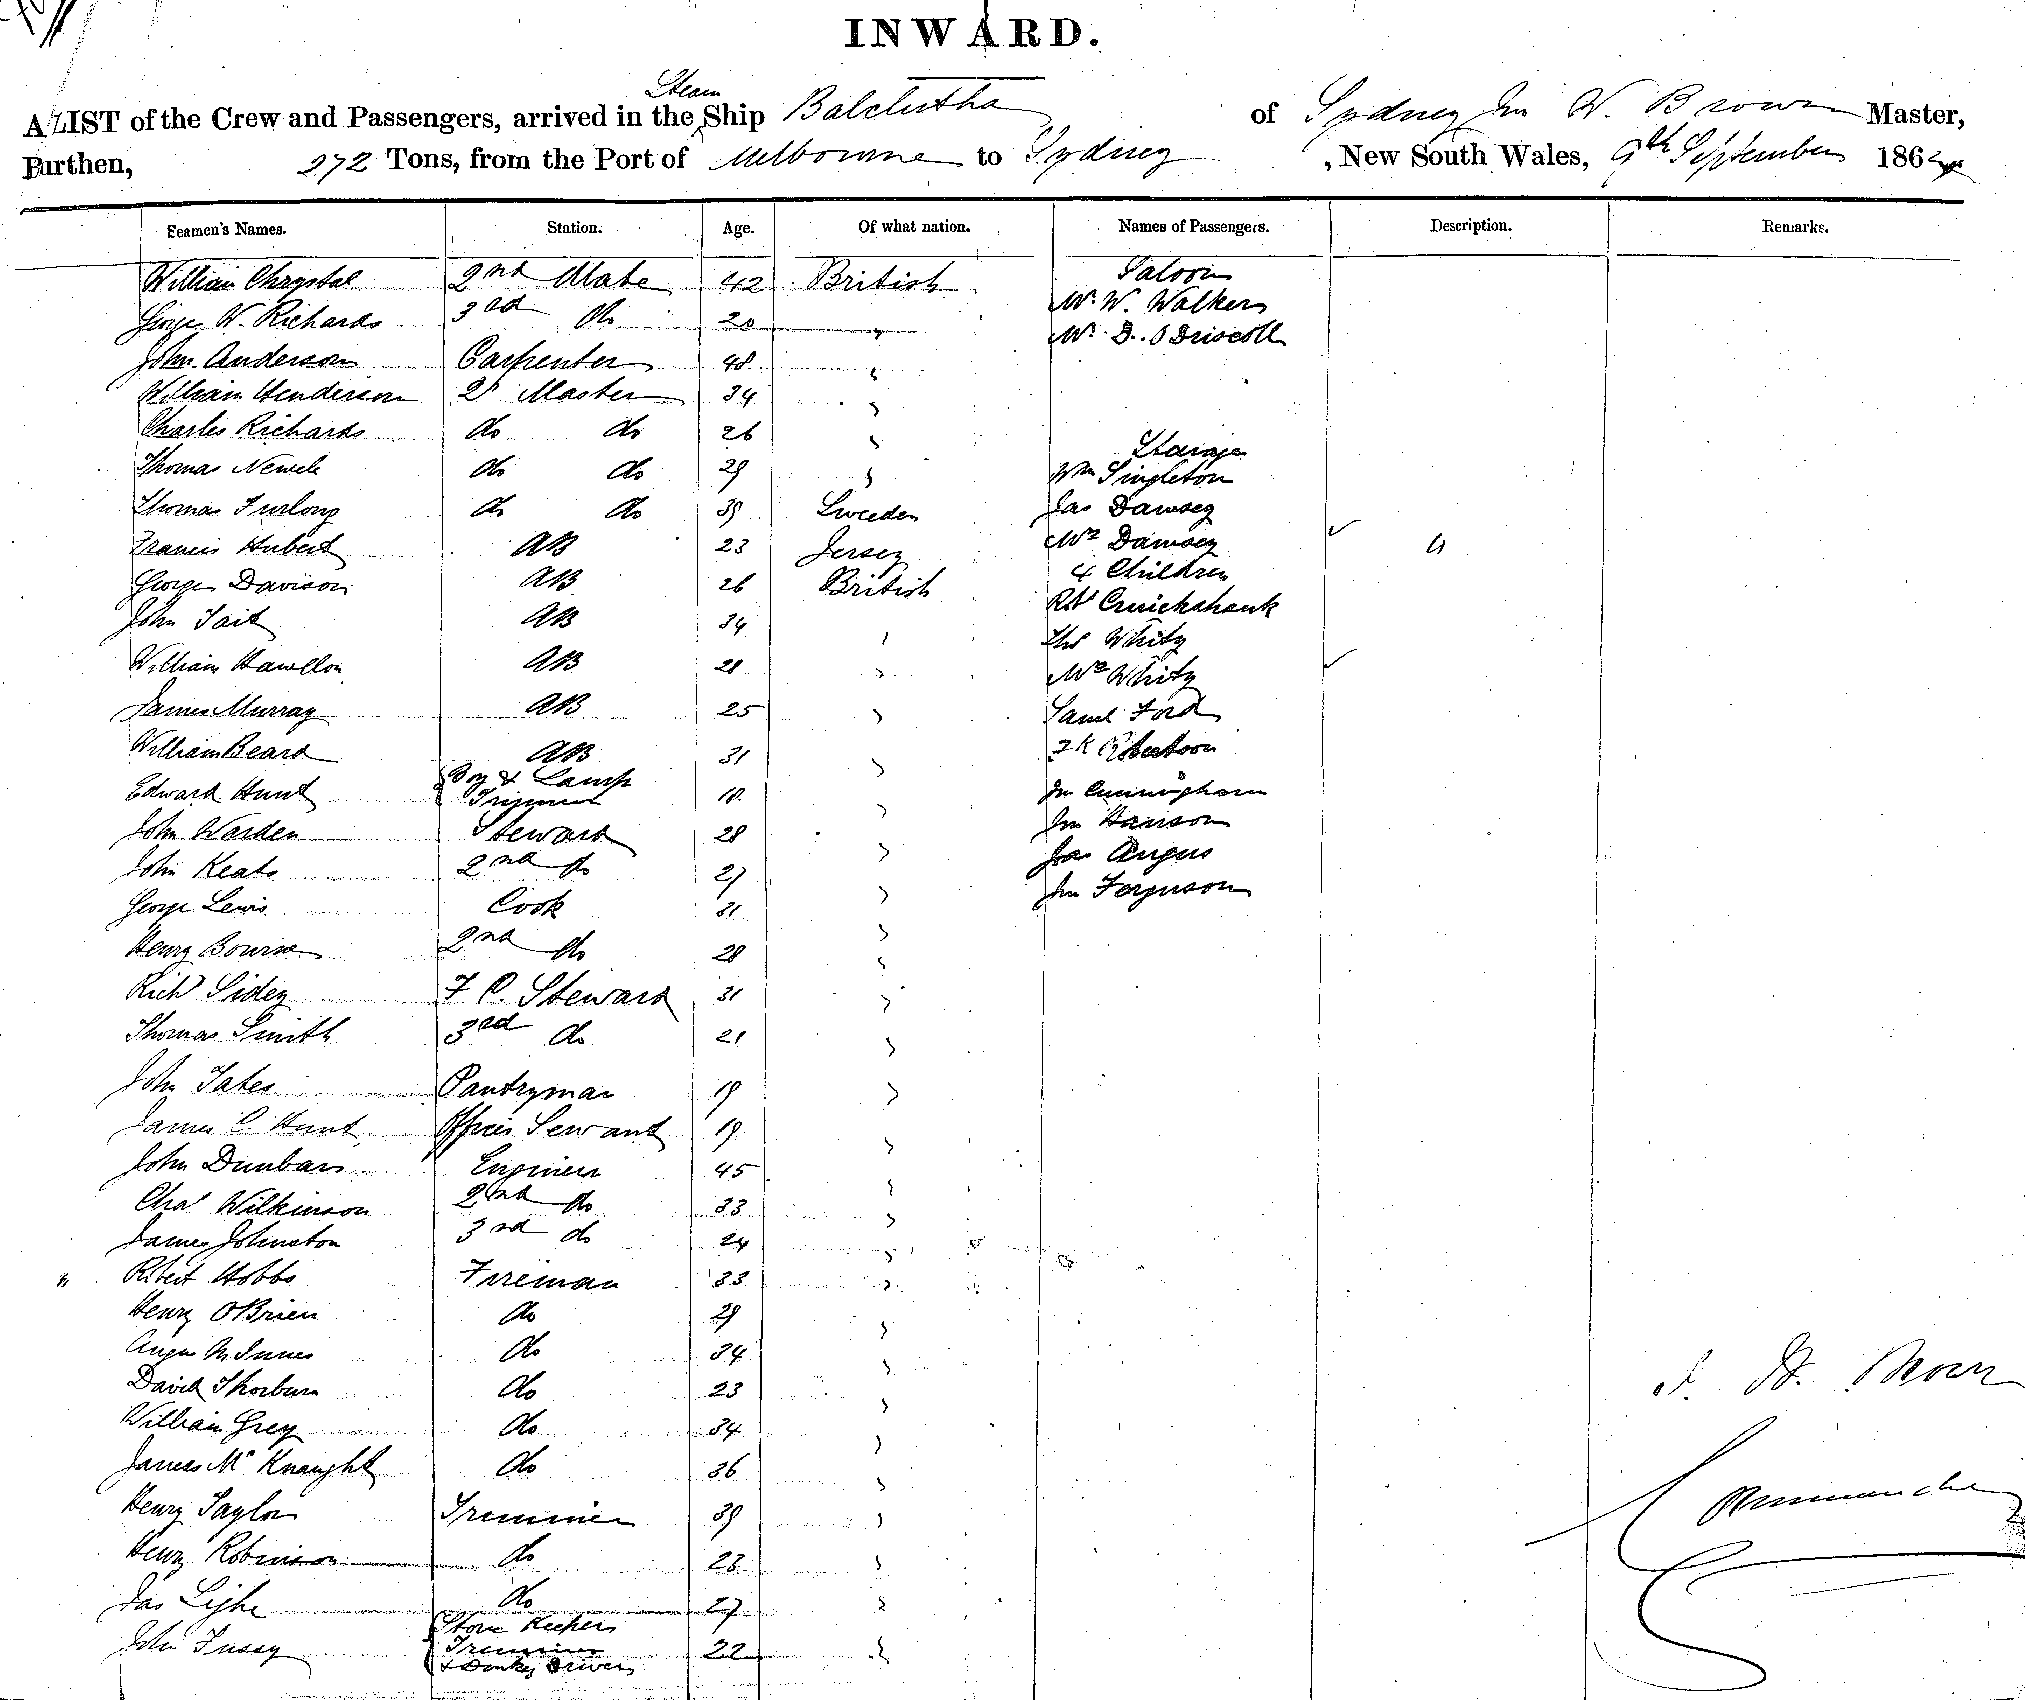 INWARD.
A LIST of the Crew and Passengers, arrived in the Steam Ship Balclutha of Sydney Jn W. Brown Master,
Burthen, 272 Tons, from the Port of Melbourne to Sydney , New South Wales, 9th September 186
Seamen's Names. Station. Age. Of what nation. Names of Passengers. Description. Remarks.
William Chrystal 2nd Mate 42 British Saloon
George W. Richards 3rd do 20 " Mr. W. Walker
John Anderson Carpenter 48 " Mr. D. O Driscoll
William Henderson 2r Master 34 "
Charles Richards do do 26 "
Thomas Newell do do 29 " Steerage
Wm Singleton
Thomas Furlong do do 39 Sweden Jas Dawsey
Francis Hubert AB 23 Jersey Mrs Dawsey
George Davison AB 26 British 4 Children
John Tait AB 34 " Rt Cruickshank
Thos Whity
William AB 28 " Mrs Whity
James Murray AB 25 " Saml Ford
William Beard AB 31 " Robertson
Edward Hunt Boy & Lamp Trimmer 18 " Jn Cunningham
John Warden Steward 28 " Jn Hanson
John Keats 2nd do 27 " Jas Angus
George Lewis Cook 31 " Jn Ferguson
Henry Bourne 2nd do 28 "
Richd Sidey F C. Steward 31 "
Thomas Smith 3rd do 21 "
John Tates Pantryman 19 "
James C Hunt Officers Servant 19 "
John Dunbar Engineer 45 "
Chas Wilkinson 2nd do 33 "
James Johnston 3rd do 24 "
" Robert Hobbs Fireman 33 "
Henry O'Brien do 29 "
Angus McInnes do 34 "
David Thorburn do 23 "
William Grey do 34 "
James Mc Knaught do 36 "
Henry Taylor Trimmer 39 "
Henry Robinson do 23 "
Jas do 27 "
John Fussey Store Keeper Trimmer & Donkey Driver 22 "
J. W. Brown
Commander